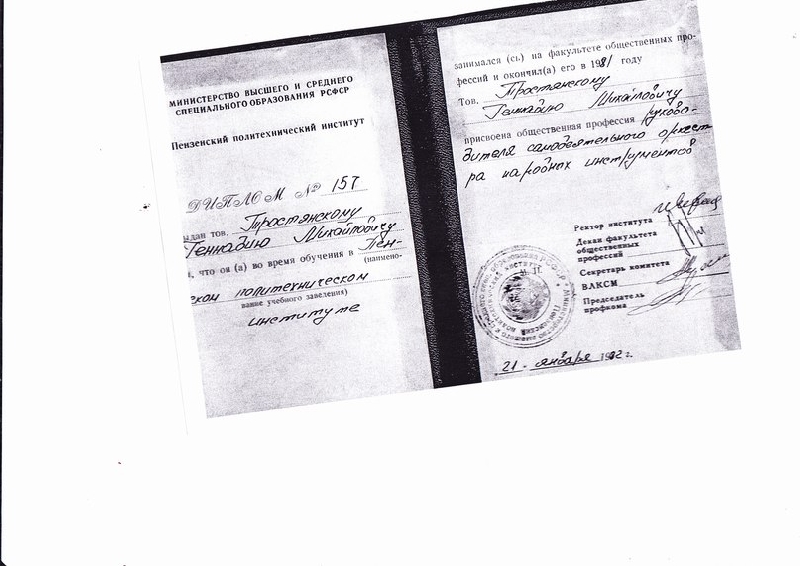 МИНИСТЕРСТВО ВЫСШЕГО И СРЕДНЕГО
СПЕЦИАЛЬНОГО ОБРАЗОВАНИЯ РСФСР
Пензенский политехнический институт
ДИПЛОМ № 157
ыдан тов. Тростянскому
Геннадию Михайловичу
, что он (а) во время обучения в Пен-
(наимено-
ском политехническом
вание учебного заведения)
институте
занимался (сь) на факультете общественных про-
фессий и окончил(а) его в 1981 году
Тов. Тростянскому
Геннадию Михайловичу
присвоена общественная профессия руково-
дителя самодеятельного оркест
ра народных инструментов
Ректор института
Декан факультета
общественных
профессий
Секретарь комитета
ВЛКСМ
Председатель
профкома
М. П.
21 января 1982 г.